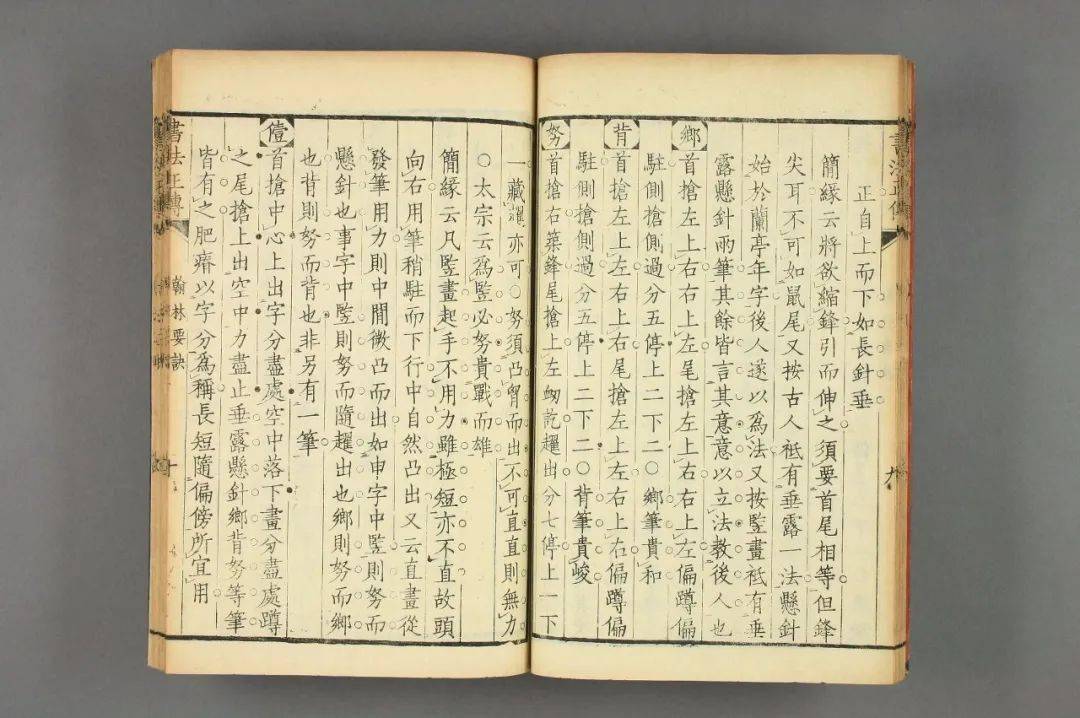 正自上而下如長針垂
簡緣云將欲縮鋒引而伸之須要首尾相等但鋒
尖耳不可如鼠尾又按古人祗有垂露一法懸針
始於蘭亭年字後人遂以為法又按竪畫祗有垂
露懸針兩筆其餘皆言其意意以立法教後人也
鄉首搶左上右右上左尾搶左上右右上左偏蹲偏
駐側搶側過分五停上二下二○鄉筆貴和
背首搶左上左右上右尾搶左上左右上右偏蹲偏
駐側搶側過分五停上二下二○背筆貴峻
努首搶右築鋒尾搶上左訖趯出分七停上一下
一藏亦可○努須凸胷而出不可直直則無力
○太宗云為竪必努貴戰而雄
簡緣云凡竪畫起手不用力雖極短亦不直故頭
向右用筆稍駐而下行中自然凸出又云直畫從
發筆用力則中間微凸而出如申字中竪則努而
懸針也事字中竪則努而隨趯出也鄉則努而鄉
也背則努而背也非另有一筆
首搶中心上出字分盡處空中落下畫分盡處蹲
之尾搶上出空中力盡止垂露懸針鄉背努等筆
皆有之肥瘠以字分為稱長短隨偏傍所宜用
書法正傳
翰林要訣
十
書法正傳
九